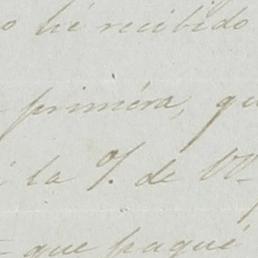 o hé recibido
priméra, qu
i la % de VV
que pagué